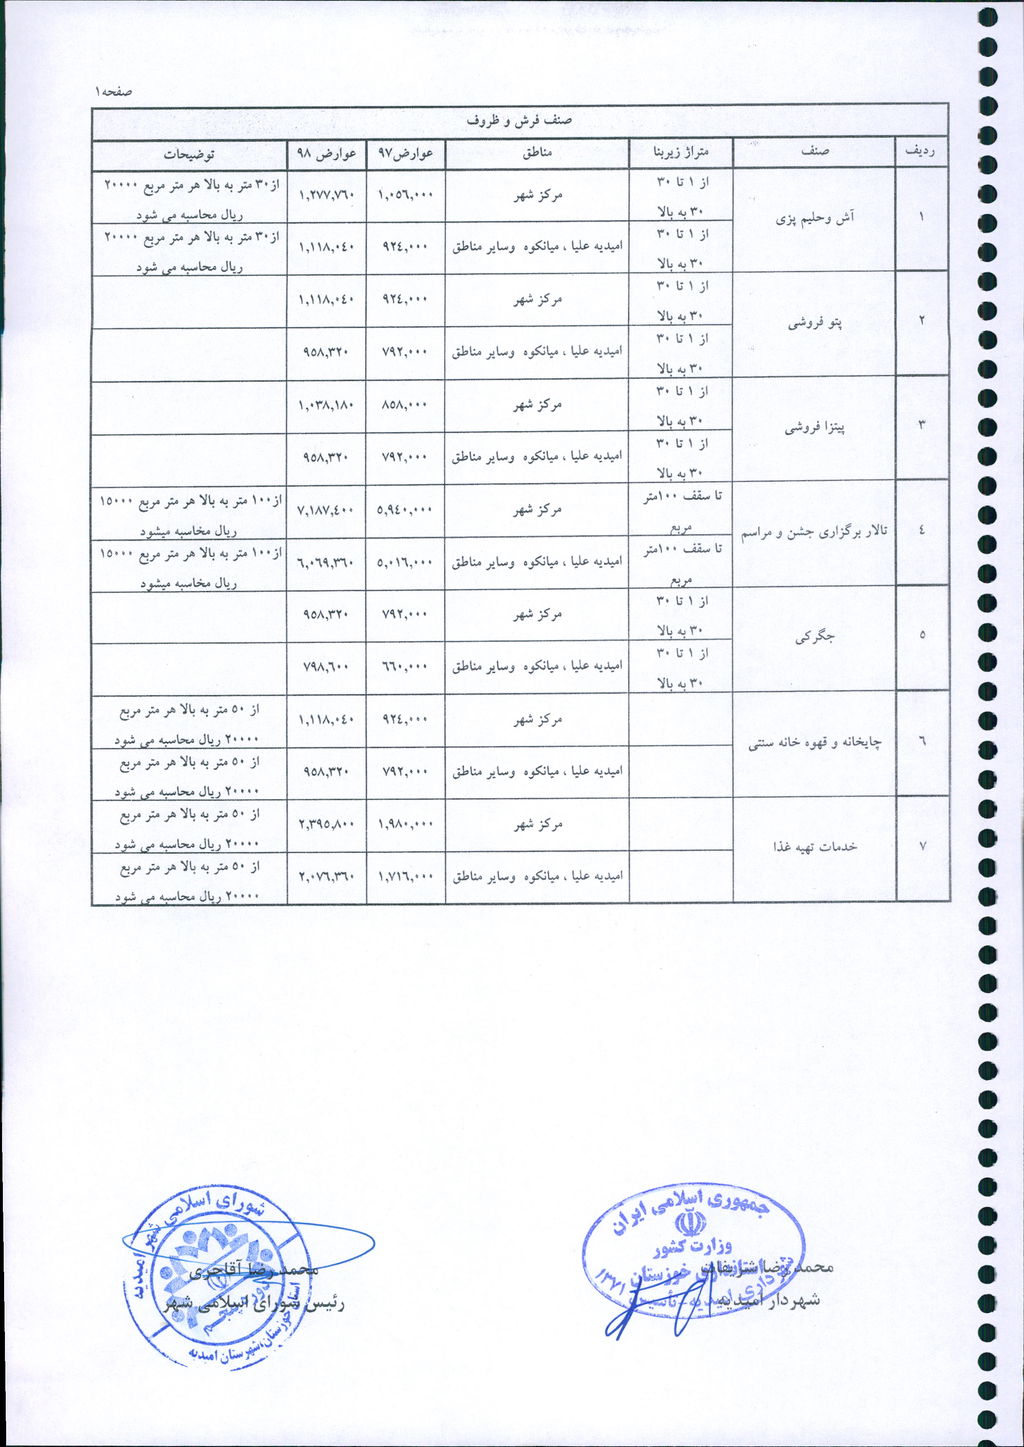 صفحه۱
صنف فرش و ظروف
ردیف صنف متراژ زیربنا مناطق عوارض۹۷ عوارض ۹۸ توضیحات
۱ آش وحلیم پزی از ۱ تا ۳۰ ۳۰ به بالا مرکز شهر ۱,۰۵٦,۰۰۰ ۱,۲۷۷,۷٦۰ از۳۰ متر به بالا هر متر مربع ۲۰۰۰۰ ریال محاسبه می شود
از ۱ تا ۳۰ ۳۰ به بالا امیدیه علیا ، میانکوه وسایر مناطق ۹۲٤,۰۰۰ ۱,۱۱۸,۰٤۰ از۳۰ متر به بالا هر متر مربع ۲۰۰۰۰ ریال محاسبه می شود
۲ پتو فروشی از ۱ تا ۳۰ ۳۰ به بالا مرکز شهر ۹۲٤,۰۰۰ ۱,۱۱۸,۰٤۰
از ۱ تا ۳۰ ۳۰ به بالا امیدیه علیا ، میانکوه وسایر مناطق ۷۹۲,۰۰۰ ۹۵۸,۳۲۰
۳ پیتزا فروشی از ۱ تا ۳۰ ۳۰ به بالا مرکز شهر ۸۵۸,۰۰۰ ۱,۰۳۸,۱۸۰
از ۱ تا ۳۰ ۳۰ به بالا امیدیه علیا ، میانکوه وسایر مناطق ۷۹۲,۰۰۰ ۹۵۸,۳۲۰
٤ تالار برگزاری جشن و مراسم تا سقف ۱۰۰متر مربع مرکز شهر ۵,۹٤۰,۰۰۰ ۷,۱۸۷,٤۰۰ از۱۰۰ متر به بالا هر متر مربع ۱۵۰۰۰ ریال مخاسبه میشود
تا سقف ۱۰۰متر مربع امیدیه علیا ، میانکوه وسایر مناطق ۵,۰۱٦,۰۰۰ ٦,۰٦۹,۳٦۰ از۱۰۰ متر به بالا هر متر مربع ۱۵۰۰۰ ریال مخاسبه میشود
۵ جگرکی از ۱ تا ۳۰ ۳۰ به بالا مرکز شهر ۷۹۲,۰۰۰ ۹۵۸,۳۲۰
از ۱ تا ۳۰ ۳۰ به بالا امیدیه علیا ، میانکوه وسایر مناطق ٦٦۰,۰۰۰ ۷۹۸,٦۰۰
٦ چایخانه و قهوه خانه سنتی مرکز شهر ۹۲٤,۰۰۰ ۱,۱۱۸,۰٤۰ از ۵۰ متر به بالا هر متر مربع ۲۰۰۰۰ ریال محاسبه می شود
امیدیه علیا ، میانکوه وسایر مناطق ۷۹۲,۰۰۰ ۹۵۸,۳۲۰ از ۵۰ متر به بالا هر متر مربع ۲۰۰۰۰ ریال محاسبه می شود
۷ خدمات تهیه غذا مرکز شهر ۱,۹۸۰,۰۰۰ ۲,۳۹۵,۸۰۰ از ۵۰ متر به بالا هر متر مربع ۲۰۰۰۰ ریال محاسبه می شود
امیدیه علیا ، میانکوه وسایر مناطق ۱,۷۱٦,۰۰۰ ۲,۰۷٦,۳٦۰ از ۵۰ متر به بالا هر متر مربع ۲۰۰۰۰ ریال محاسبه می شود
جمهوری اسلامی ایران
وزارت کشور
استانداری خوزستان
شهرداری امیدیه - تأسیس ۱۳۷۱
محمد رضا شریفات
شهردار امیدیه
شورای اسلامی شهر امیدیه
دوره پنجم
استان خوزستان، شهرستان امیدیه
محمد رضا آقاجری
رئیس شورای اسلامی شهر